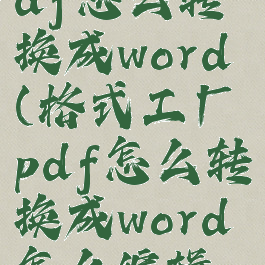 df怎么转
换成word
(格式工厂
pdf怎么转
换成word
怎么编辑